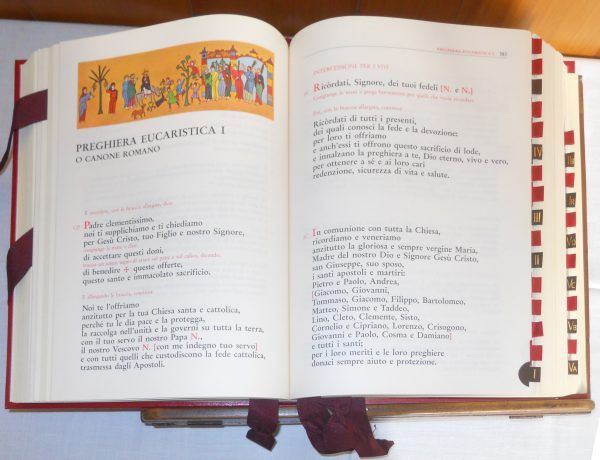 PREGHIERA EUCARISTICA I
O CANONE ROMANO
E sacerdote, con le braccia allargate, dice:
CP Padre clementissimo,
noi ti supplichiamo e ti chiediamo
per Gesù Cristo, tuo Figlio e nostro Signore,
congiunge le mani e dice
di accettare questi doni,
di benedire + queste offerte,
questo santo e immacolato sacrificio.
E allargando le braccia, continua:
Noi te l'offriamo
anzitutto per la tua Chiesa santa e cattolica,
perché tu le dia pace e la protegga,
la raccolga nell'unità e la governi su tutta la terra,
con il tuo servo il nostro Papa N.,
il nostro Vescovo N. [con me indegno tuo servo]
e con tutti quelli che custodiscono la fede cattolica,
trasmessa dagli Apostoli.
PREGHIERA EUCARISTICA I 385
INTERCESSIONE PER I VIVI
Ricòrdati, Signore, dei tuoi fedeli [N. e N.]
Congiunge le mani e prega brevemente per quelli che vuole ricordare.
Poi, con le braccia allargate, continua:
Ricòrdati di tutti i presenti,
dei quali conosci la fede e la devozione:
per loro ti offriamo
e anch'essi ti offrono questo sacrificio di lode,
e innalzano la preghiera a te, Dio eterno, vivo e vero,
per ottenere a sé e ai loro cari
redenzione, sicurezza di vita e salute.
In comunione con tutta la Chiesa,
ricordiamo e veneriamo
anzitutto la gloriosa e sempre vergine Maria,
Madre del nostro Dio e Signore Gesù Cristo,
san Giuseppe, suo sposo,
i santi apostoli e martiri:
Pietro e Paolo, Andrea,
[Giacomo, Giovanni,
Tommaso, Giacomo, Filippo, Bartolomeo,
Matteo, Simone e Taddeo,
Lino, Cleto, Clemente, Sisto,
Cornelio e Cipriano, Lorenzo, Crisogono,
Giovanni e Paolo, Cosma e Damiano]
e tutti i santi;
per i loro meriti e le loro preghiere
donaci sempre aiuto e protezione.
IV
III
II
I
Vc
VB
VA